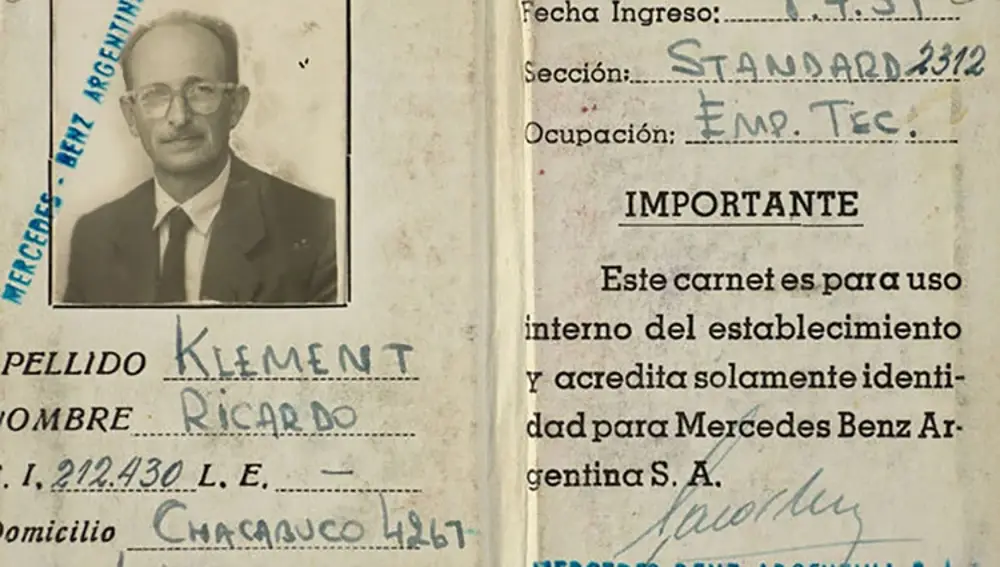 MERCEDES - BENZ ARGENTINA
PELLIDO KLEMENT
NOMBRE RICARDO
. I. 212.430 L. E. —
Domicilio CHACABUCO 4261
Fecha Ingreso:
Sección: STANDARD 2312
Ocupación: EMP. TEC.
IMPORTANTE
Este carnet es para uso
interno del establecimiento
y acredita solamente identi-
dad para Mercedes Benz Ar-
gentina S. A.
MERCEDES BENZ ARGENTINA